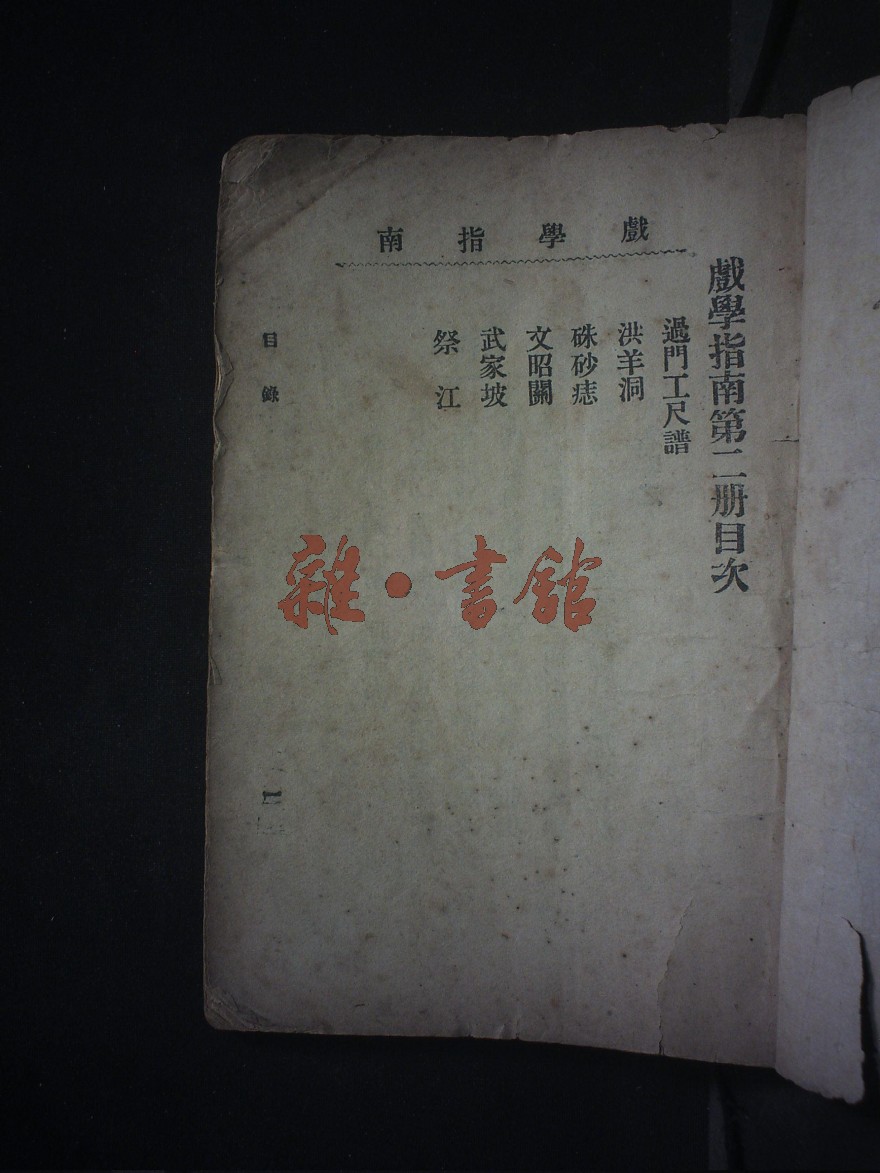 戲學指南
戲學指南第二册目次
過門工尺譜
洪羊洞
硃砂痣
文昭關
武家坡
祭江
目錄
雜·書館